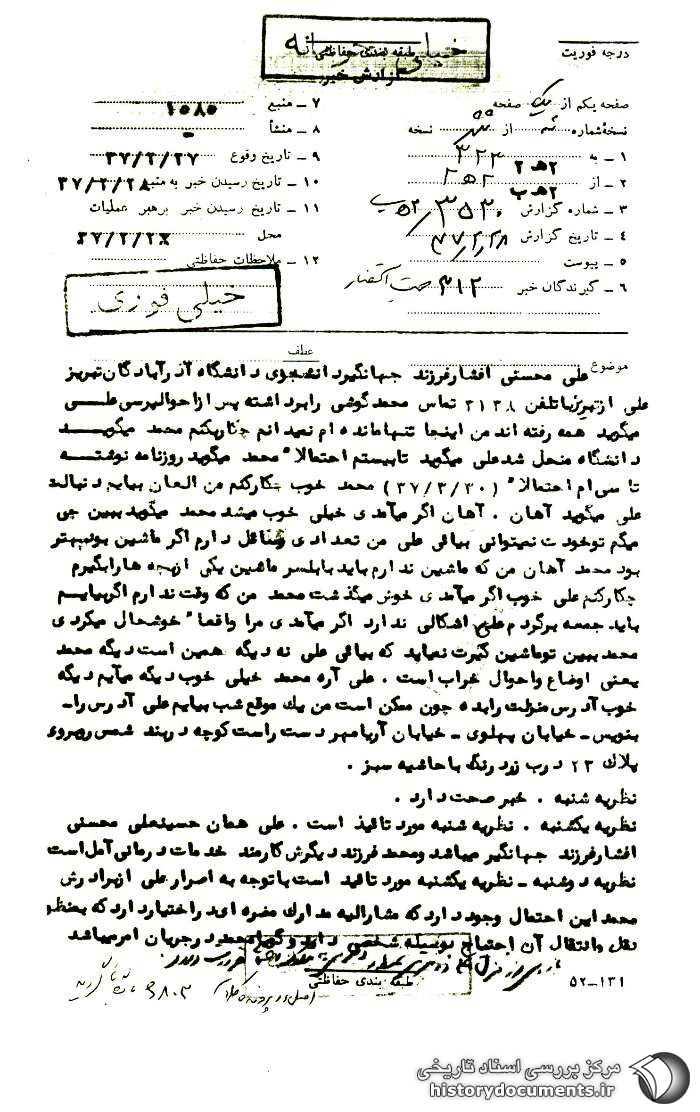 خیلی محرمانه
طبقه بندی حفاظتی
گزارش خبر
درجه فوریت
صفحه یکم از یک صفحه
نسخه شماره سه از شش نسخه
۱ ـ به ۳۲۲
۲ ـ از ۲هـ۲ ۲هـ ب
۳ ـ شماره گزارش
۴ ـ تاریخ گزارش ۳۷/۲/۲۸
۵ ـ پیوست
۶ ـ گیرندگان خبر ۳۱۲ جهت استحضار
۷ ـ منبع ۱۵۸۵
۸ ـ منشأ ـ
۹ ـ تاریخ وقوع ۳۷/۲/۲۷
۱۰ ـ تاریخ رسیدن خبر به منبع ۳۷/۲/۲۸
۱۱ ـ تاریخ رسیدن خبر برهبر عملیات
محل ۳۷/۲/۲۸
۱۲ ـ ملاحظات حفاظتی
خیلی فوری
عطف
موضوع علی محسنی افشار فرزند جهانگیر دانشجوی دانشگاه آذرآبادگان تبریز
علی از تبریز با تلفن ۳۱۳۸ تماس محمد گوشی را برداشته پس از احوالپرسی علی
میگوید همه رفته اند من اینجا تنها مانده ام نمیدانم چکار بکنم محمد میگوید
دانشگاه منحل شد علی میگوید تا بیستم احتمالا" محمد میگوید روزنامه نوشته
تا سی ام احتمالا" (۳۷/۳/۳۰) محمد خوب چکار کنم من الان بیایم دنبالت
علی میگوید آهان . آهان اگر میآمدی خیلی خوب میشد محمد میگوید ببین چی
میگم توخودت نمیتوانی بیائی علی من تعدادی وسائل دارم اگر ماشین بود بهتر
بود محمد آهان من که ماشین ندارم باید بابلسر ماشین یکی از بچه ها را بگیرم
چکار کنم علی خوب اگر میآمدی خوش میگذشت محمد من که وقت ندارم اگر بیایم
باید جمعه برگردم علی اشکالی ندارد اگر میآمدی مرا واقعا" خوشحال میکردی
محمد ببین تو ماشین گیرت نمیاید که بیائی علی نه دیگه همین است دیگه محمد
یعنی اوضاع واحوال خراب است . علی آره محمد خیلی خوب دیگه میآیم دیگه
خوب آدرس منزلت را بده چون ممکن است من یک موقع شب بیایم علی آدرس را ـ
بنویس ـ خیابان پهلوی ـ خیابان آریامهر دست راست کوچه دربند شمس روبروی
پلاک ۲۳ درب زرد رنگ با حاشیه سبز .
نظریه شنبه . خبر صحت دارد .
نظریه یکشنبه . نظریه شنبه مورد تائید است . علی همان حسینعلی محسنی
افشار فرزند جهانگیر میباشد ومحمد فرزند دیگرش کارمند خدمات درمانی آمل است
نظریه دوشنبه ـ نظریه یکشنبه مورد تائید است با توجه به اصرار علی از برادرش
محمد این احتمال وجود دارد که مشارالیه مدارک مضره ای در اختیار دارد که بمنظور
نقل وانتقال آن احتیاج بوسیله شخصی دارد و گویا محمد در جریان امر میباشد
طبقه بندی حفاظتی
۱۳۱ـ۵۲
مرکز بررسی اسناد تاریخی
historydocuments.ir